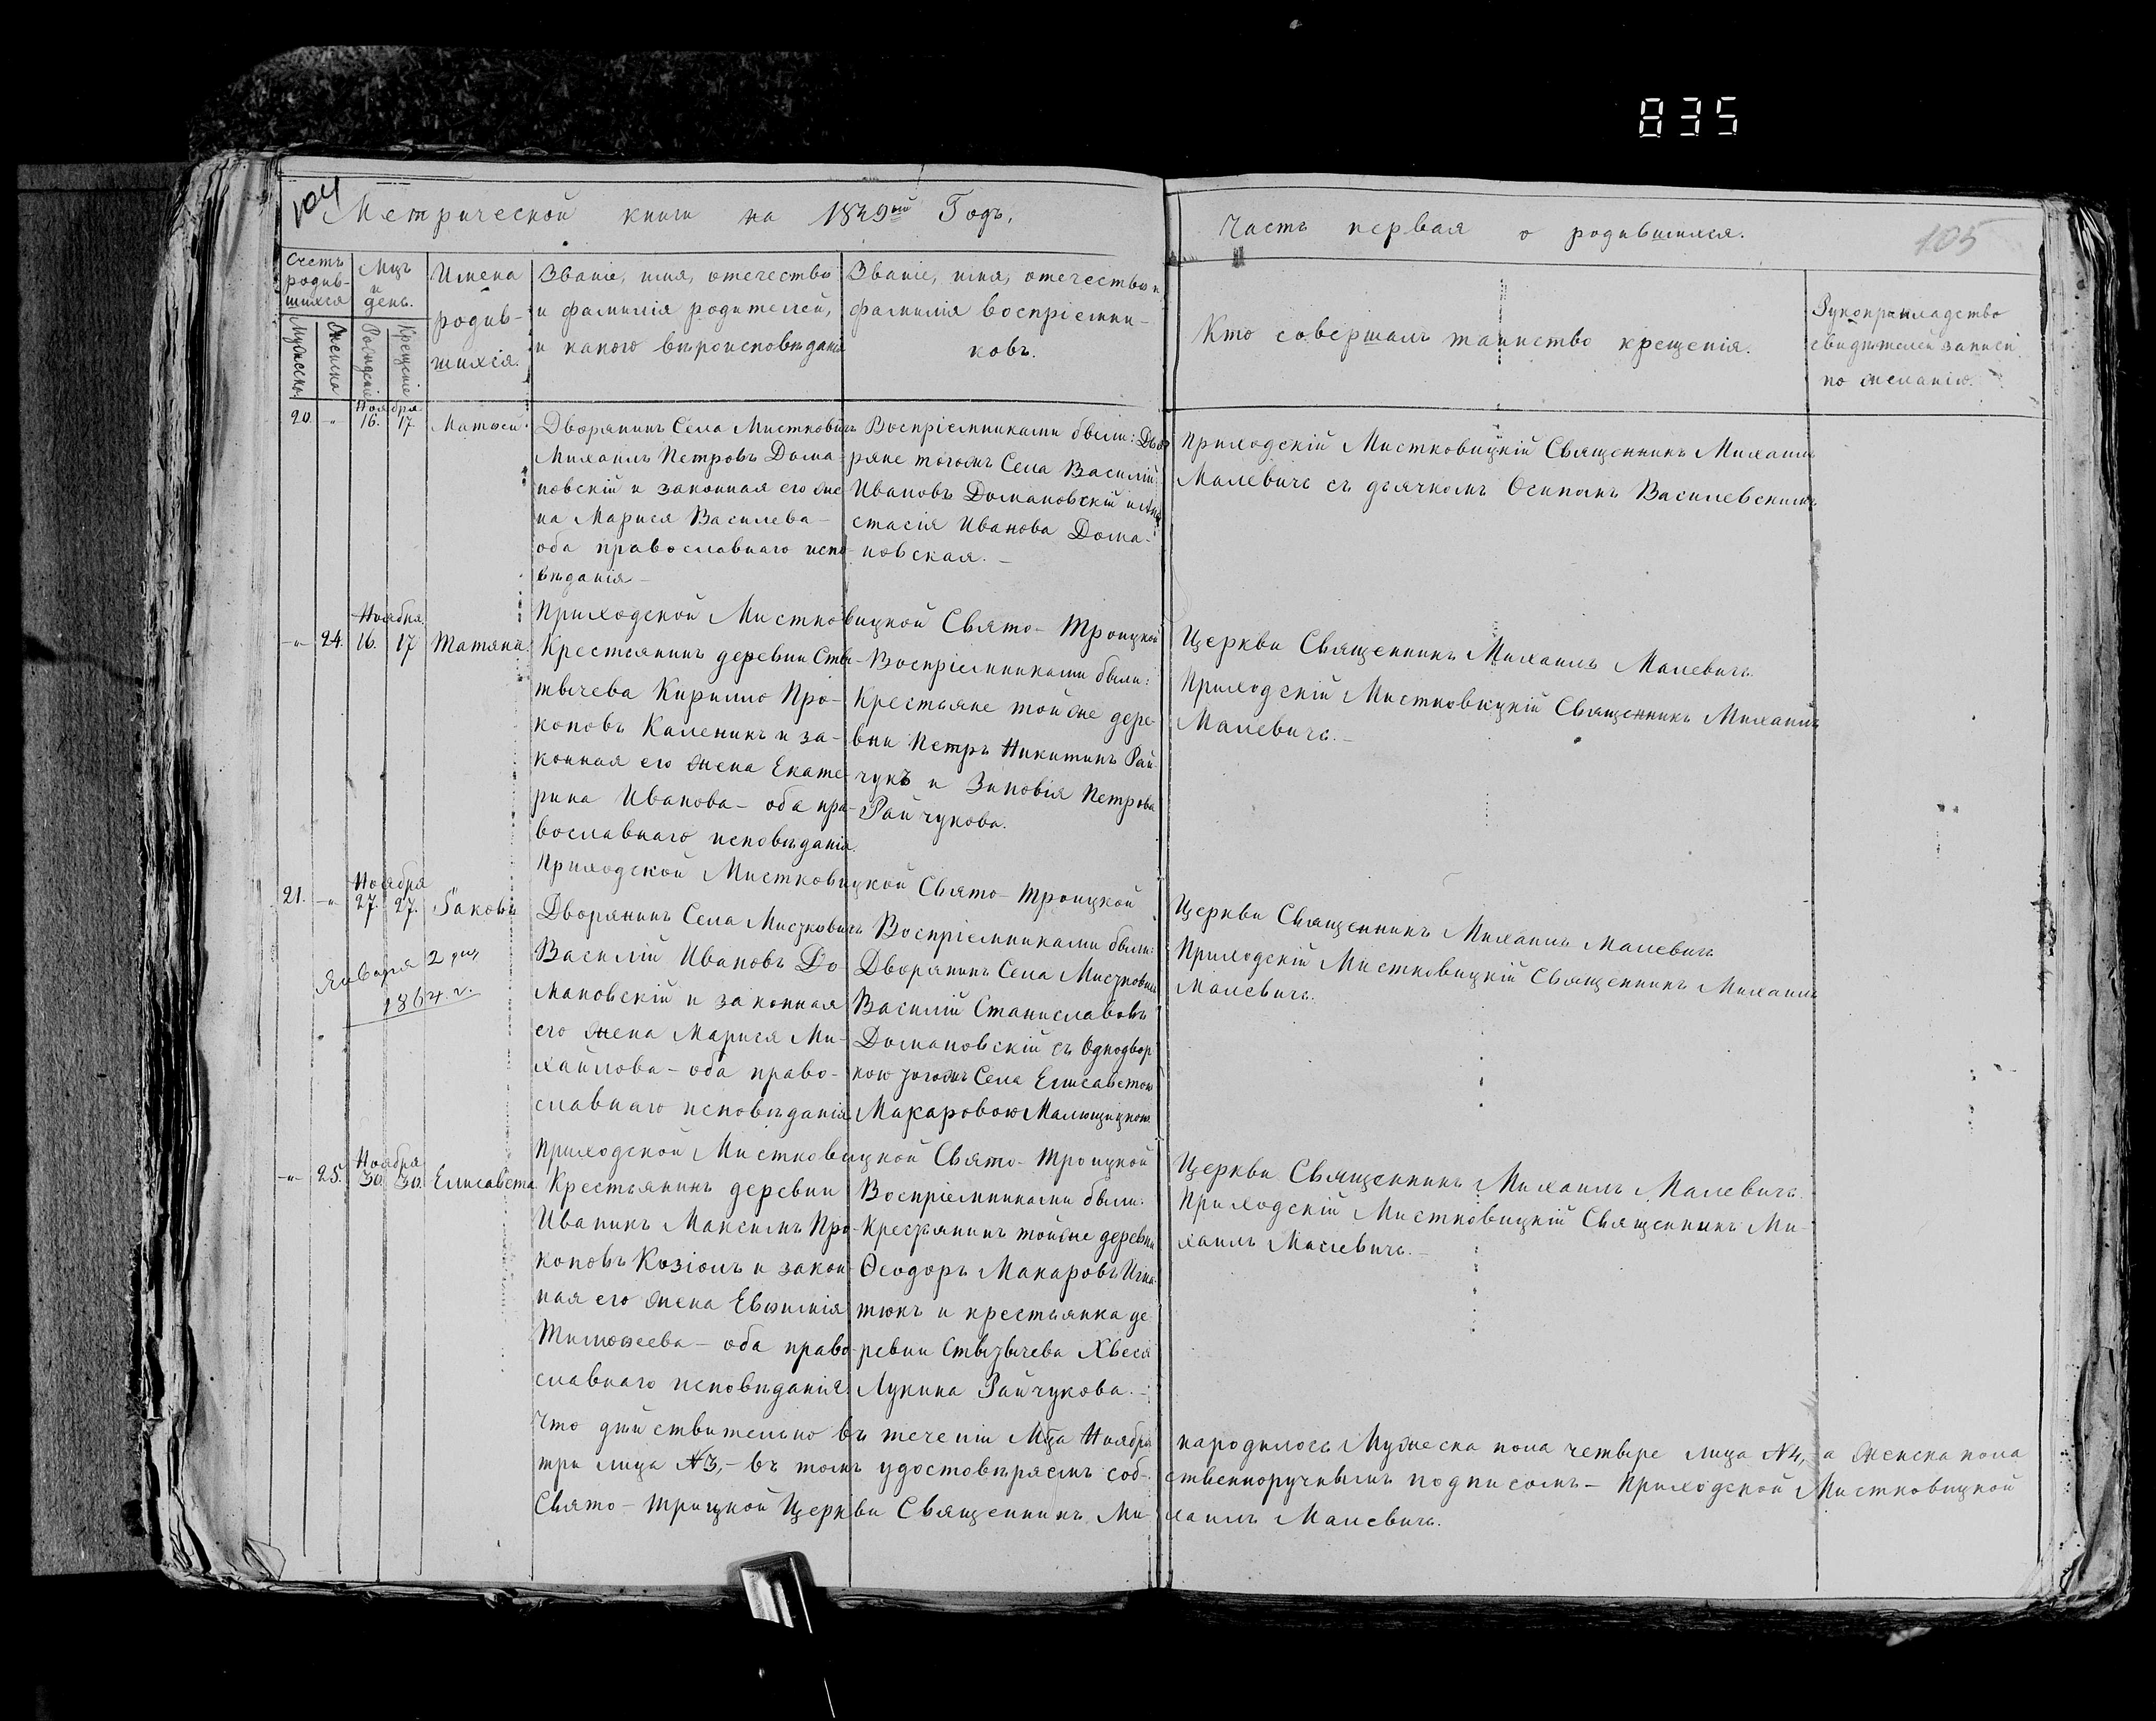 835
104
Метрической книги на 1849ый Годъ.
Часть первая о родившихся.
105
Счетъ родив-шихся
Мужеска
Женска
Мцъ и день.
Рожденіе
Крещеніе
Имена
родив-
шихся.
Званіе, имя, отечество
и фамилія родителей,
и какого вѣроисповѣданія
Званіе, имя, отечество и
фамилія воспріемни-
ковъ.
Кто совершалъ таинство крещенія.
Рукоприкладство
свидѣтелей записи
по желанію.
Ноября
20. -"- 16. 17. Матѳей.
Дворянинъ Села Мистковичъ
Михаилъ Петровъ Дома-
новскій и законная его же
на Марися Василева -
оба православнаго испо-
вѣданія -
Воспріемниками были: Дво
ряне тогожъ Села Василій
Ивановъ Домановскій и Ана
стасія Иванова Дома-
новская. -
Приходскій Мистковицкій Священникъ Михаилъ
Малевичъ съ дьячкомъ Осипомъ Василевскимъ
Приходской Мистковицкой Свято-Троицкой
Церкви Священникъ Михаилъ Малевичъ.
Ноября
-"- 24. 16. 17 Татяна.
Крестьянинъ деревни Ствы-
тычева Кирилло Про-
коповъ Каленикъ и за-
конная его жена Екате-
рина Иванова - оба пра-
вославнаго исповѣданія.
Воспріемниками были:
Крестьяне тойже дере-
вни Петръ Никитинъ Рай
чукъ и Зиновія Петрова
Райчукова.
Приходскій Мистковицкій Священникъ Михаилъ
Малевичъ. -
Приходской Мистковицкой Свято-Троицкой
Церкви Священникъ Михаилъ Малевичъ
Ноября
21. -"- 27. 27. Іаковъ
Января 2 дня
1864. г.
Дворянинъ Села Мистковичъ
Василій Ивановъ До
мановскій и законная
его жена Марися Ми-
хайлова - оба право-
славнаго исповѣданія
Воспріемниками были:
Дворянинъ Села Мистковичъ
Василій Станиславовъ
Домановскій съ Однодвор
кою тогожъ Села Елисаветою
Макаровою
Приходскій Мистковицкій Священникъ Михаилъ
Малевичъ.
Приходской Мистковицкой Свято-Троицкой
Церкви Священникъ Михаилъ Малевичъ
Ноября
-"- 25. 30. 30. Елисавета
Крестьянинъ деревни
Иваникъ Максимъ Про-
коповъ Козіолъ и закон
ная его жена Евфимія
Тимоѳеева - оба право-
славнаго исповѣданія
Воспріемниками были:
Крестьянинъ тойже деревни
Ѳеодоръ Макаровъ Игна-
тюкъ и крестьянка де
ревни Ствытычева Хвеся
Лукина Райчукова. -
Приходскій Мистковицкій Священникъ Ми-
хаилъ Малевичъ. -
Что дѣйствительно въ теченіи Мца Ноября народилось Мужеска пола четыре лица №4,- а женска пола
три лица №3,- въ томъ удостовѣряемъ соб-ственноручнымъ подписомъ - Приходской Мистковицкой
Свято-Трицкой Церкви Священникъ Ми-хаилъ Малевичъ.